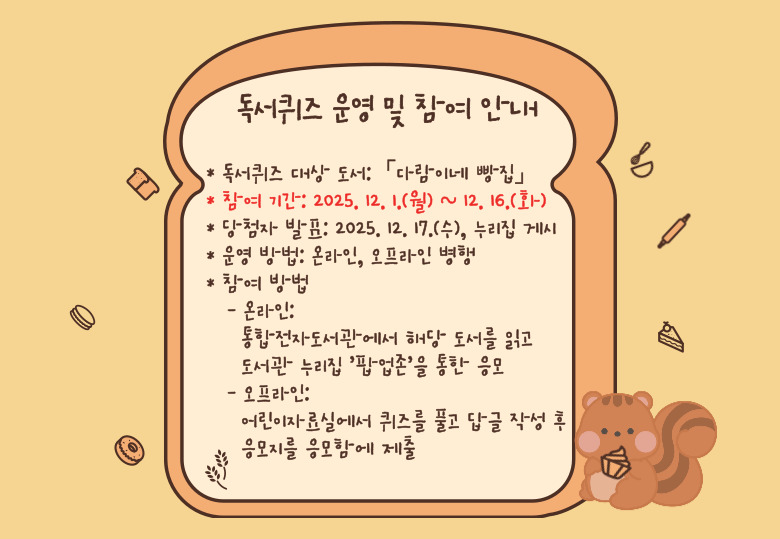 독서퀴즈 운영 및 참여 안내
* 독서퀴즈 대상 도서: 「다람이네 빵집」
* 참여 기간: 2025. 12. 1.(월) ~ 12. 16.(화)
* 당첨자 발표: 2025. 12. 17.(수), 누리집 게시
* 운영 방법: 온라인, 오프라인 병행
* 참여 방법
- 온라인:
통합전자도서관에서 해당 도서를 읽고
도서관 누리집 '팝업존'을 통한 응모
- 오프라인:
어린이자료실에서 퀴즈를 풀고 답글 작성 후
응모지를 응모함에 제출